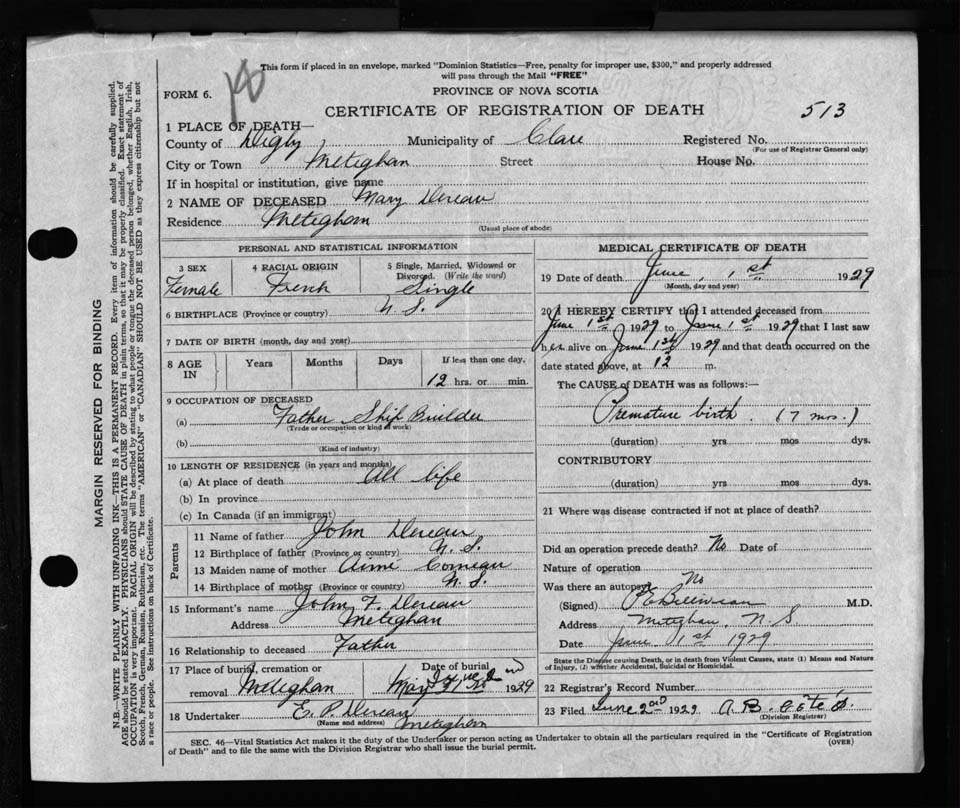 This form if placed in an envelope, marked "Dominion Statistics—Free, penalty for improper use, $300," and properly addressed
will pass through the Mail "FREE"
FORM 6.
PROVINCE OF NOVA SCOTIA
CERTIFICATE OF REGISTRATION OF DEATH
513
1 PLACE OF DEATH—
County of Digby Municipality of Clare Registered No.
(For use of Registrar General only)
City or Town Meteghan Street House No.
If in hospital or institution, give name
2 NAME OF DECEASED Mary Deveau
Residence Meteghan
(Usual place of abode)
PERSONAL AND STATISTICAL INFORMATION
3 SEX 4 RACIAL ORIGIN 5 Single, Married, Widowed or
Divorced. (Write the word)
Female French Single
6 BIRTHPLACE (Province or country) N. S.
7 DATE OF BIRTH (month, day and year)
8 AGE IN Years Months Days If less than one day,
12 hrs. or min.
9 OCCUPATION OF DECEASED
(a) Father Ship Builder
(Trade or occupation or kind of work)
(b)
(Kind of industry)
10 LENGTH OF RESIDENCE (in years and months)
(a) At place of death All life
(b) In province
(c) In Canada (if an immigrant)
Parents
11 Name of father John Deveau
12 Birthplace of father (Province or country) N. S.
13 Maiden name of mother Comeau
14 Birthplace of mother (Province or country) N. S.
15 Informant's name John F. Deveau
Address Meteghan
16 Relationship to deceased Father
17 Place of burial, cremation or Date of burial
removal Meteghan 1929
18 Undertaker E. P. Deveau
(Name and address) Meteghan
MEDICAL CERTIFICATE OF DEATH
19 Date of death June, 1st 1929
(Month, day and year)
20 I HEREBY CERTIFY that I attended deceased from
June 1st 1929 to June 1st 1929 that I last saw
her alive on June 1st 1929 and that death occurred on the
date stated above, at 12 m.
The CAUSE OF DEATH was as follows:—
Premature birth (7 mos.)
(duration) yrs mos dys.
CONTRIBUTORY
(duration) yrs mos dys.
21 Where was disease contracted if not at place of death?
Did an operation precede death? No Date of
Nature of operation
Was there an autopsy No
(Signed) M.D.
Address Meteghan, N. S.
Date June 1st 1929
State the Disease causing Death, or in death from Violent Causes, state (1) Means and Nature
of Injury, (2) whether Accidental, Suicidal or Homicidal.
22 Registrar's Record Number
23 Filed June 2nd 1929 A. B.
(Division Registrar)
SEC. 46—Vital Statistics Act makes it the duty of the Undertaker or person acting as Undertaker to obtain all the particulars required in the "Certificate of Registration
of Death" and to file the same with the Division Registrar who shall issue the burial permit. (OVER)
MARGIN RESERVED FOR BINDING
N.B.—WRITE PLAINLY WITH UNFADING INK—THIS IS A PERMANENT RECORD. Every item of information should be carefully supplied.
AGE should be stated EXACTLY. PHYSICIANS should STATE CAUSE OF DEATH in plain terms, so that it may be properly classified. Exact statement of
OCCUPATION is very important. RACIAL ORIGIN will be described by stating to what people or tongue the deceased person belonged, whether English, Irish,
Scotch, French, German, Russian, Ruthenian, etc. The terms "AMERICAN" or "CANADIAN" SHOULD NOT BE USED as they express citizenship but not
a race or people. See instructions on back of Certificate.